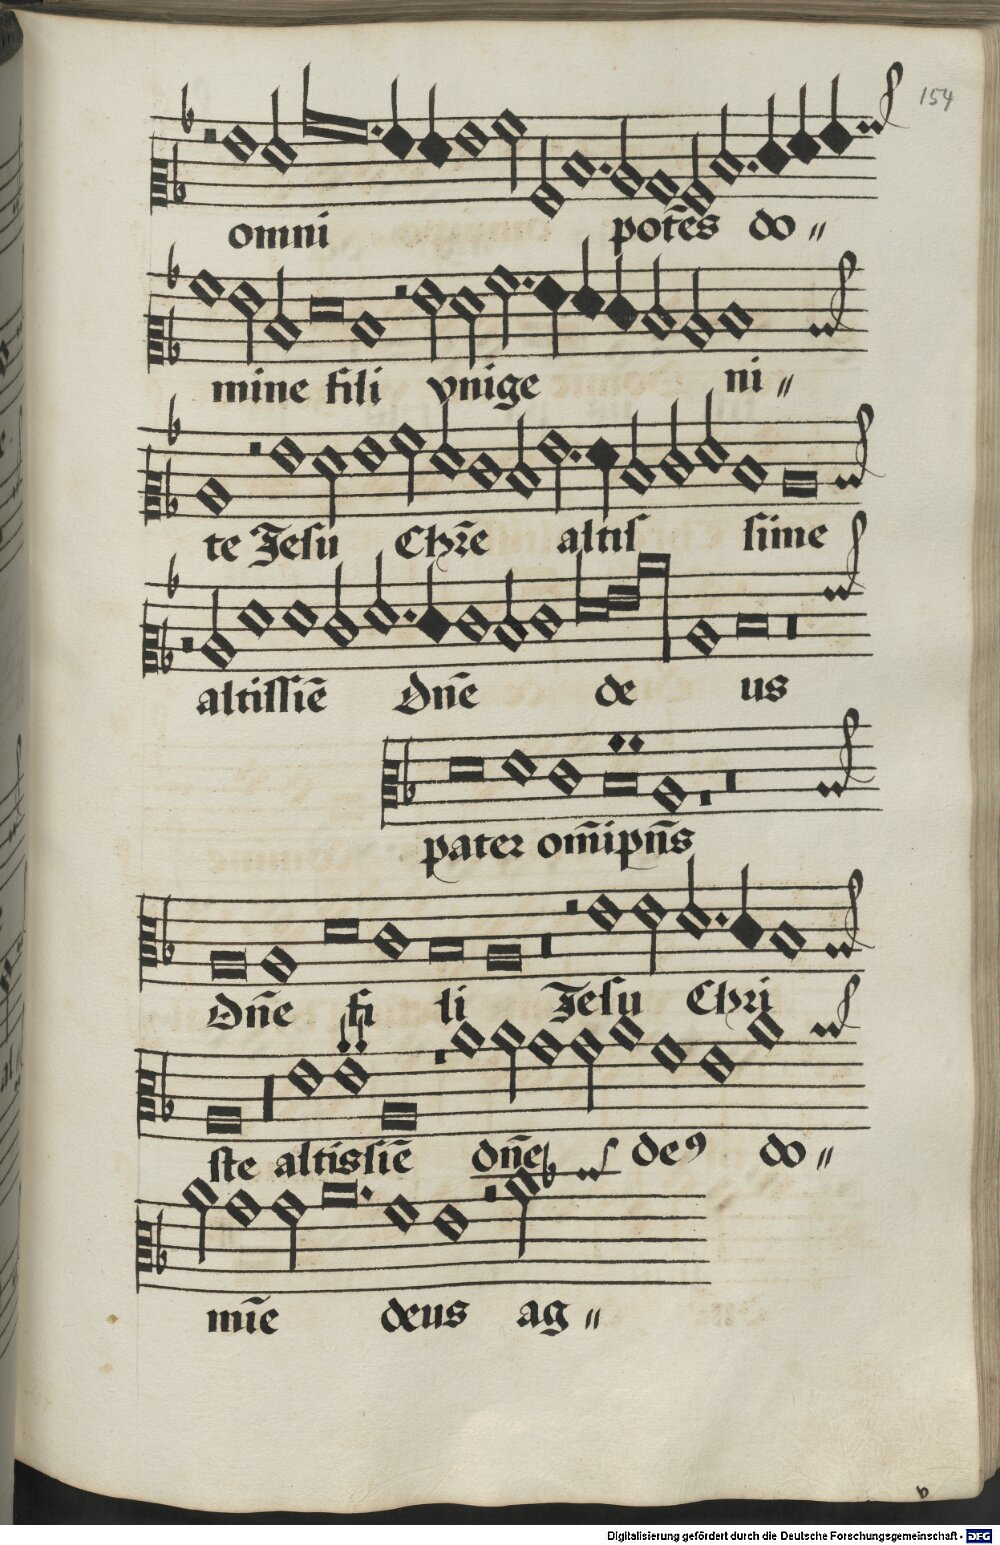 154
omni potēs do〃
mine fili vnige ni〃
te Jesu Chr̄e altis sime
altissiē Dn̄e de us
pater om̄ipn̄s
Dn̄e fi li Jesu Chri
ste altissiē dn̄e deꝰ do〃
mīe deus ag〃
b
Digitalisierung gefördert durch die Deutsche Forschungsgemeinschaft - DFG